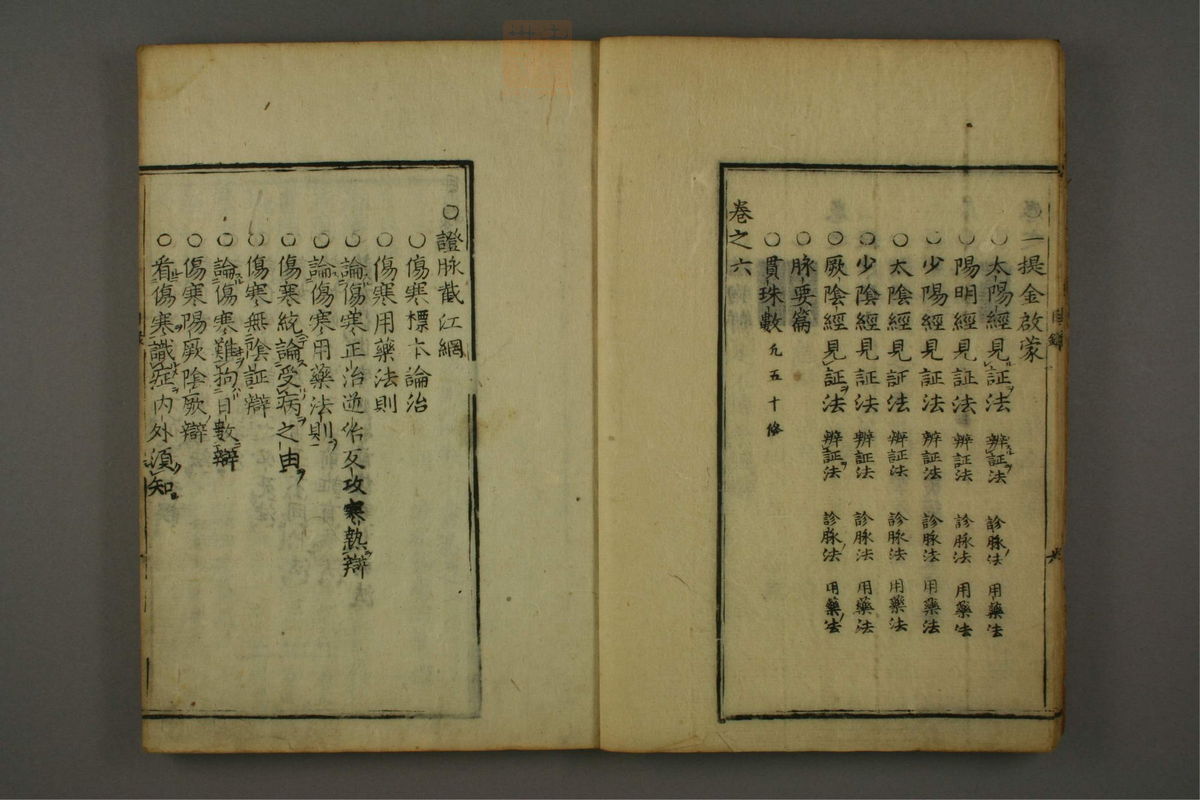 ○一提金啟蒙
○太陽經見証法 辨証法 診脉法 用藥法
○陽明經見証法 辨証法 診脉法 用藥法
○少陽經見証法 辨証法 診脉法 用藥法
○太陰經見証法 辨証法 診脉法 用藥法
○少陰經見証法 辨証法 診脉法 用藥法
○厥陰經見証法 辨証法 診脉法 用藥法
○脉要篇
○貫珠數 凡五十條
卷之六
○證脉截江網
○傷寒標本論治
○傷寒用藥法則
○論傷寒正治逆治及攻寒熱辯
○論傷寒用藥法則
○傷寒統論受病之由
○傷寒無陰証辯
○論傷寒難拘日數辯
○傷寒陽厥陰厥辯
○看傷寒識症內外須知